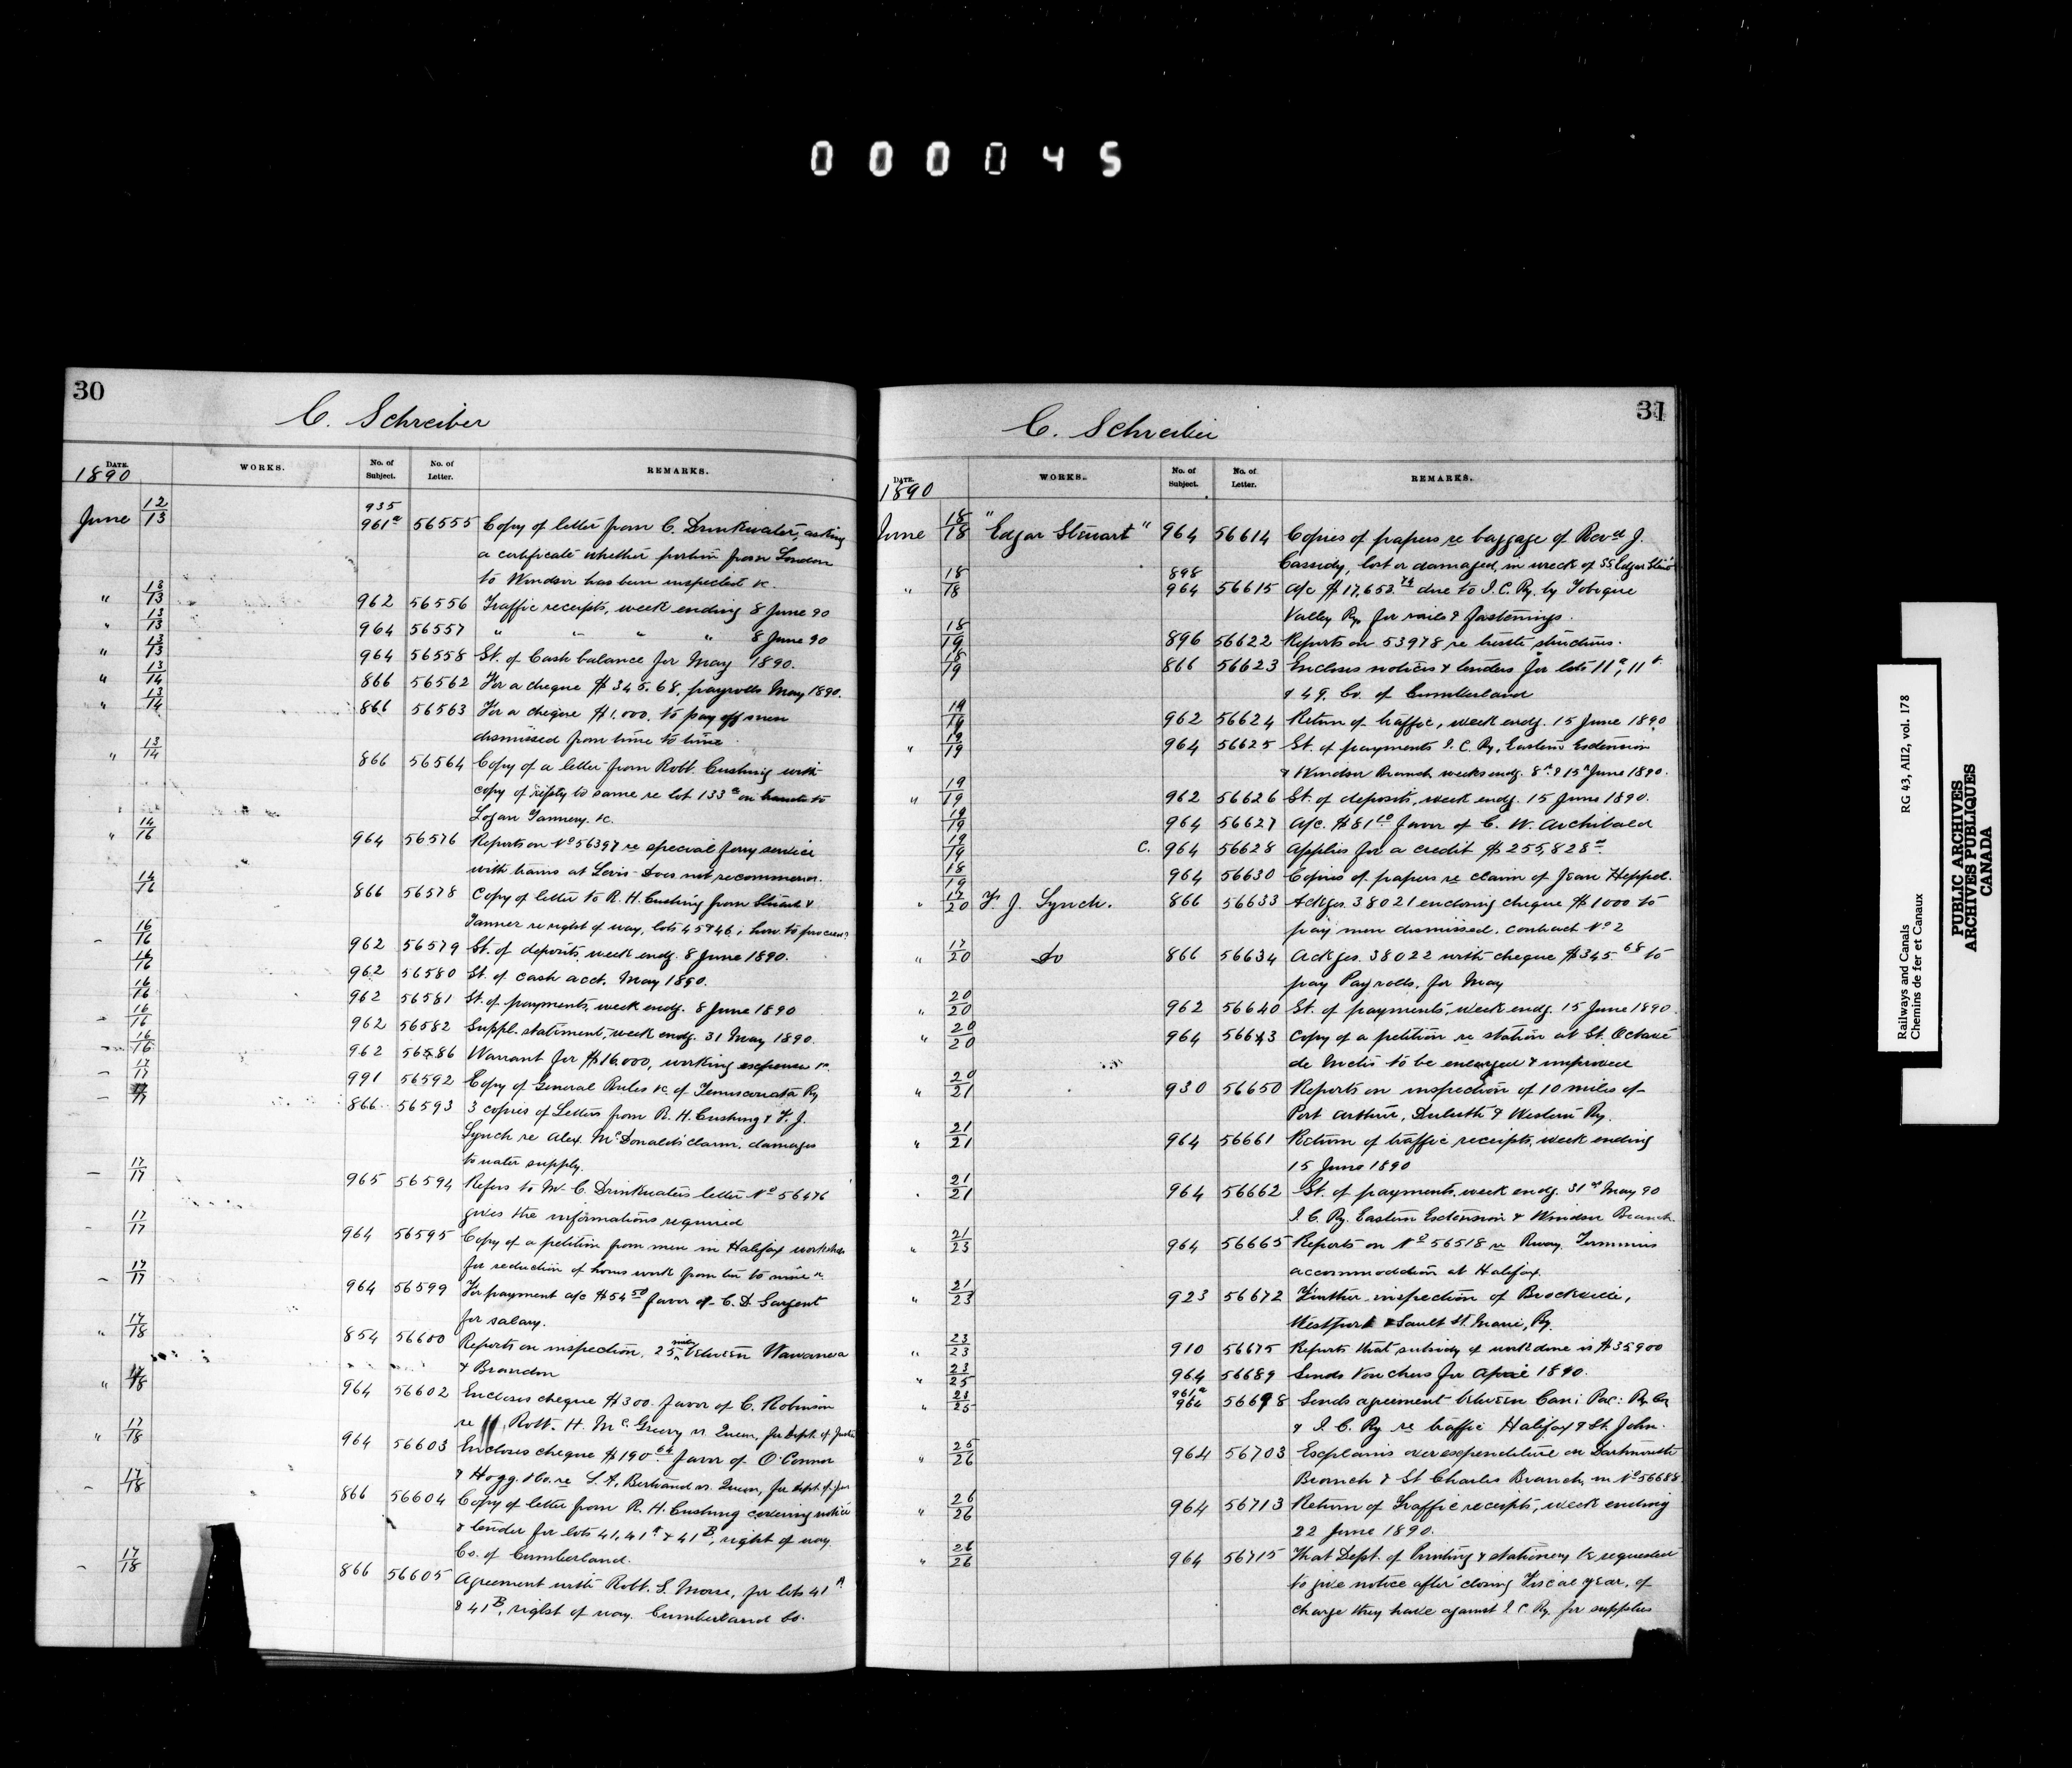 000045
30
C. Schreiber
DATE. WORKS. No. of Subject. No. of Letter. REMARKS.
1890
935
June 12/13 961a 56555 Copy of letter from C. Drinkwater, asking
a certificate whether portion from London
to Windsor has been inspected &c.
" 13/13 962 56556 Traffic receipts, week ending 8 June 90
" 13/13 964 56557 " " " " 8 June 90
" 13/13 964 56558 St. of Cash balance for May 1890.
" 13/14 866 56562 For a cheque $345.68, payrolls May 1890.
" 13/14 866 56563 For a cheque $1,000. to pay off men
dismissed from time to time.
" 13/14 866 56564 Copy of a letter from Robt. Cushing with
copy of reply to same re lot 133a on branch to
Logan Tannery. &c.
" 14/16 964 56576 Reports on No 56397 re special ferry service
with trains at Levis - Does not recommend.
14/16 866 56578 Copy of letter to R. H. Cushing from Stuart &
Tanner re right of way, lots 45 & 46; how to proceed?
16/16 962 56579 St. of deposits, week endg. 8 June 1890.
16/16 962 56580 St. of cash acct. May 1890.
16/16 962 56581 St. of payments, week endg. 8 June 1890
16/16 962 56582 Suppl. statement, week endg. 31 May 1890.
16/16 962 56586 Warrant for $16.000, working expenses
17/17 991 56592 Copy of General Rules &c. of Temiscouata Ry
17/17 866 56593 3 copies of Letters from R. H. Cushing & Y. J.
Lynch re Alex. McDonald's claim, damages
to water supply.
17/17 965 56594 Refers to Mr. C. Drinkwaters letter No 56476
gives the informations required
17/17 964 56595 Copy of a petition from men in Halifax workshop
for reduction of hours work from ten to nine
17/17 964 56599 For payment a/c $54 50 favor of C. D. Sargent
for salary.
" 17/18 854 56600 Reports on inspection, 25 miles between Wawanesa
& Brandon
" 17/18 964 56602 Encloses cheque $300. favor of C. Robinson
re Robt. H. McGreevy vs. Queen, for Dept. of Justice
" 17/18 964 56603 Encloses cheque $190 favor of O'Connor
& Hogg. &co. re L. A. Bertrand vs. Queen, for Dept. of Jus
17/18 866 56604 Copy of letter from R. H. Cushing covering notice
& tender for lots 41, 41A & 41B, right of way
Co. of Cumberland.
17/18 866 56605 Agreement with Robt. S. Morse, for lots 41A
& 41B, right of way. Cumberland Co.
31
C. Schreiber
DATE. WORKS. No. of Subject. No. of Letter. REMARKS.
1890
June 18/18 "Edgar Stuart" 964 56614 Copies of papers re baggage of Revd J.
Cassidy, lost or damaged, in wreck of SS Edgar Stuart
898
" 18/18 964 56615 a/c $17,653.74 due to I. C. Ry. by Tobique
Valley Ry. for rails & fastenings.
18/19 896 56622 Reports on 53978 re trestle structures.
18/19 866 56623 Encloses notices & tenders for lots 11a, 11b
& 49. Co. of Cumberland
19/19 962 56624 Return of traffic, week endg. 15 June 1890
" 19/19 964 56625 St. of payments I. C. Ry, Eastern Extension
& Windsor Branch weeks endg. 8th & 15th June 1890.
" 19/19 962 56626 St. of deposits, week endg. 15 June 1890.
19/19 964 56627 A/c. $81 favor of C. W. Archibald
19/19 C. 964 56628 Applies for a credit $255,828
18/19 964 56630 Copies of papers re claim of Jean Heppel.
" 17/20 Y. J. Lynch. 866 56633 Ackges. 38021 enclosing cheque $1000 to
pay men dismissed. contract No 2
" 17/20 Do 866 56634 Ackges. 38022 with cheque $345.68 to
pay Payrolls, for May
" 20/20 962 56640 St. of payments, week endg. 15 June 1890.
" 20/20 964 56643 Copy of a petition re station at St. Octave
de Metis to be enlarged & improved
" 20/21 930 56650 Reports on inspection of 10 miles of
Port Arthur, Duluth & Western Ry.
" 21/21 964 56661 Return of traffic receipts, week ending
15 June 1890
21/21 964 56662 St. of payments, week endg. 31st May 90
I. C. Ry. Eastern Extension & Windsor Branch.
" 21/23 964 56665 Reports on No 56518 re Rway. Terminus
accommodation at Halifax.
" 21/23 923 56672 Further inspection of Brockville,
Westport & Sault St. Marie, Ry.
" 23/23 910 56675 Reports that subsidy of work done is $35900
" 23/25 964 56689 Sends Vouchers for April 1890.
961a
" 23/25 964 56698 Sends agreement between Can: Pac: Ry Co
& I. C. Ry re traffic Halifax & St. John.
" 25/26 964 56703 Explains over expenditure on Dartmouth
Branch & St Charles Branch, in No 56688.
" 26/26 964 56713 Return of Traffic receipts, week ending
22 June 1890.
" 26/26 964 56715 That Dept. of Printing & stationery be requested
to give notice after closing Fiscal year, of
charge they have against I. C. Ry. for supplies
Railways and Canals RG 43, AII2, vol. 178
Chemins de fer et Canaux
PUBLIC ARCHIVES
ARCHIVES PUBLIQUES
CANADA